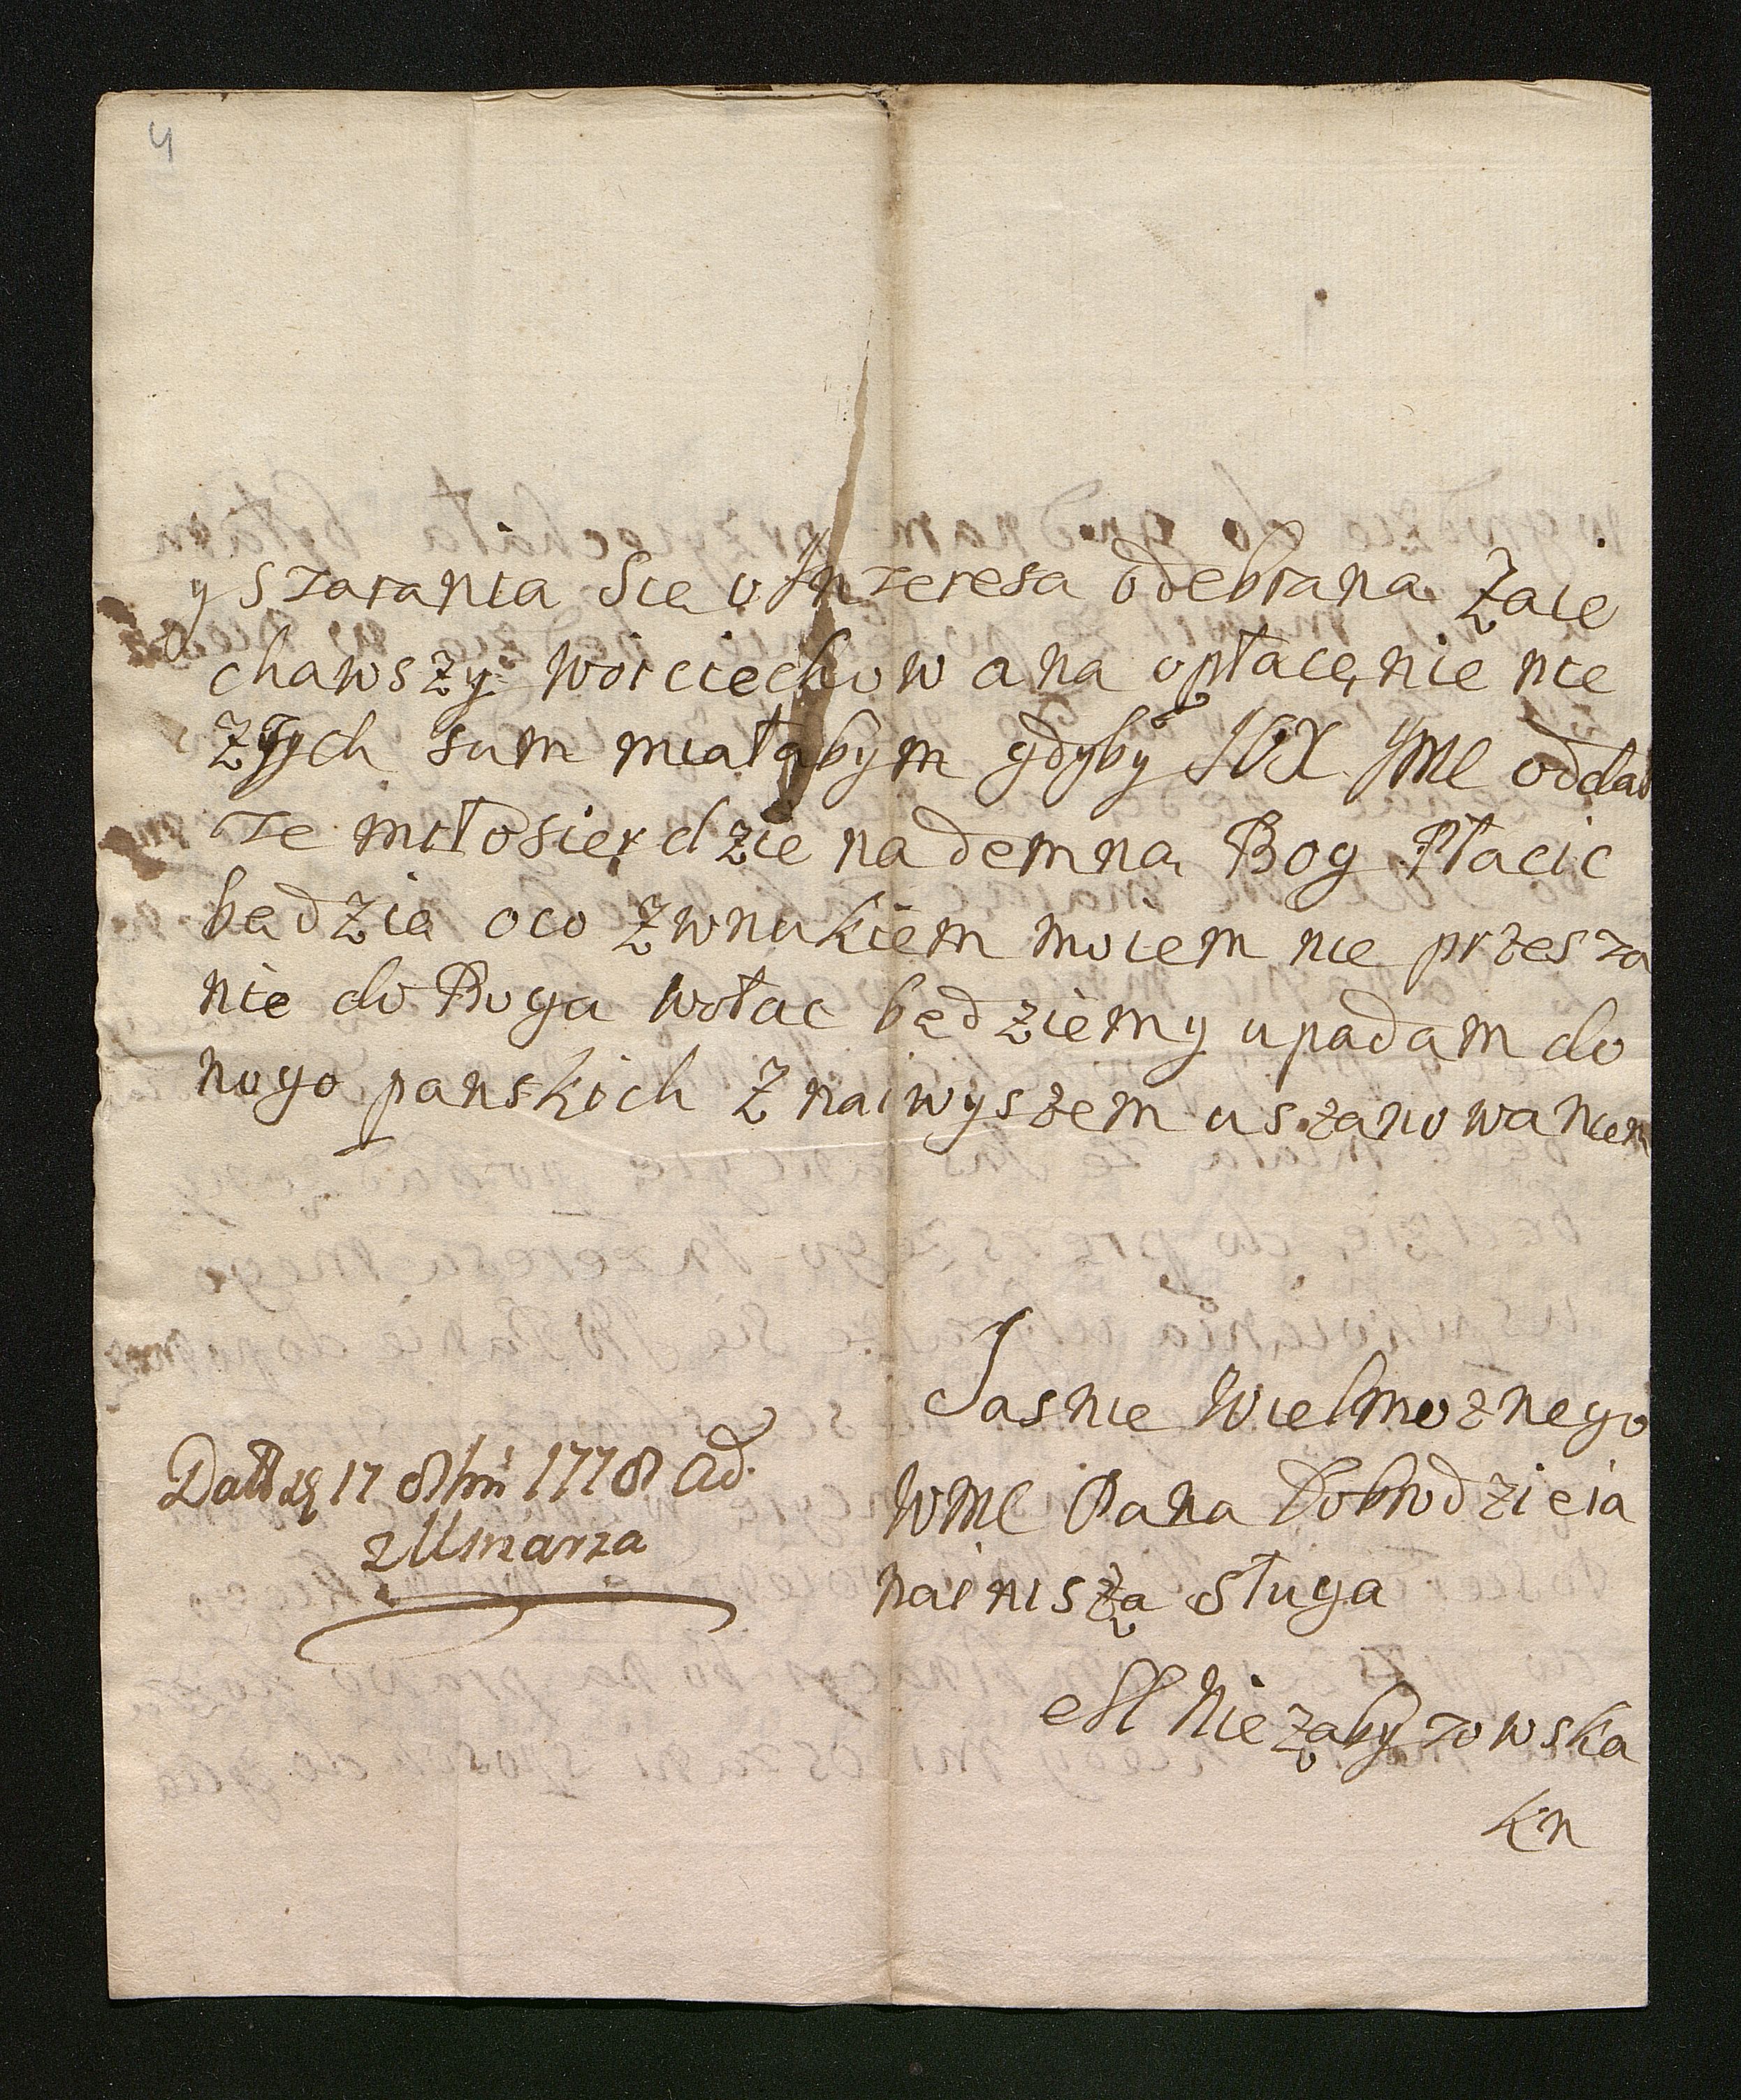 4
y starania Sie o Interesa odebrana Zaie
chawszy woiciechow a na opłacenie nie
Ztych sum miałabym gdyby JXX JMC oddał
Te miłosierdzie nademna Bog Płacic
bedzie oco Zwnukiem moiem nie przesta
nie do Boga wołac będziemy upadam do
nogo panskich Z naiwyszem uszanowaniem
Jasnie Wielmoznego
WMC Pana Dobrodzieia
nainisza sługa
M Niezabytowska
kn
17 8bris 1778 Ad.